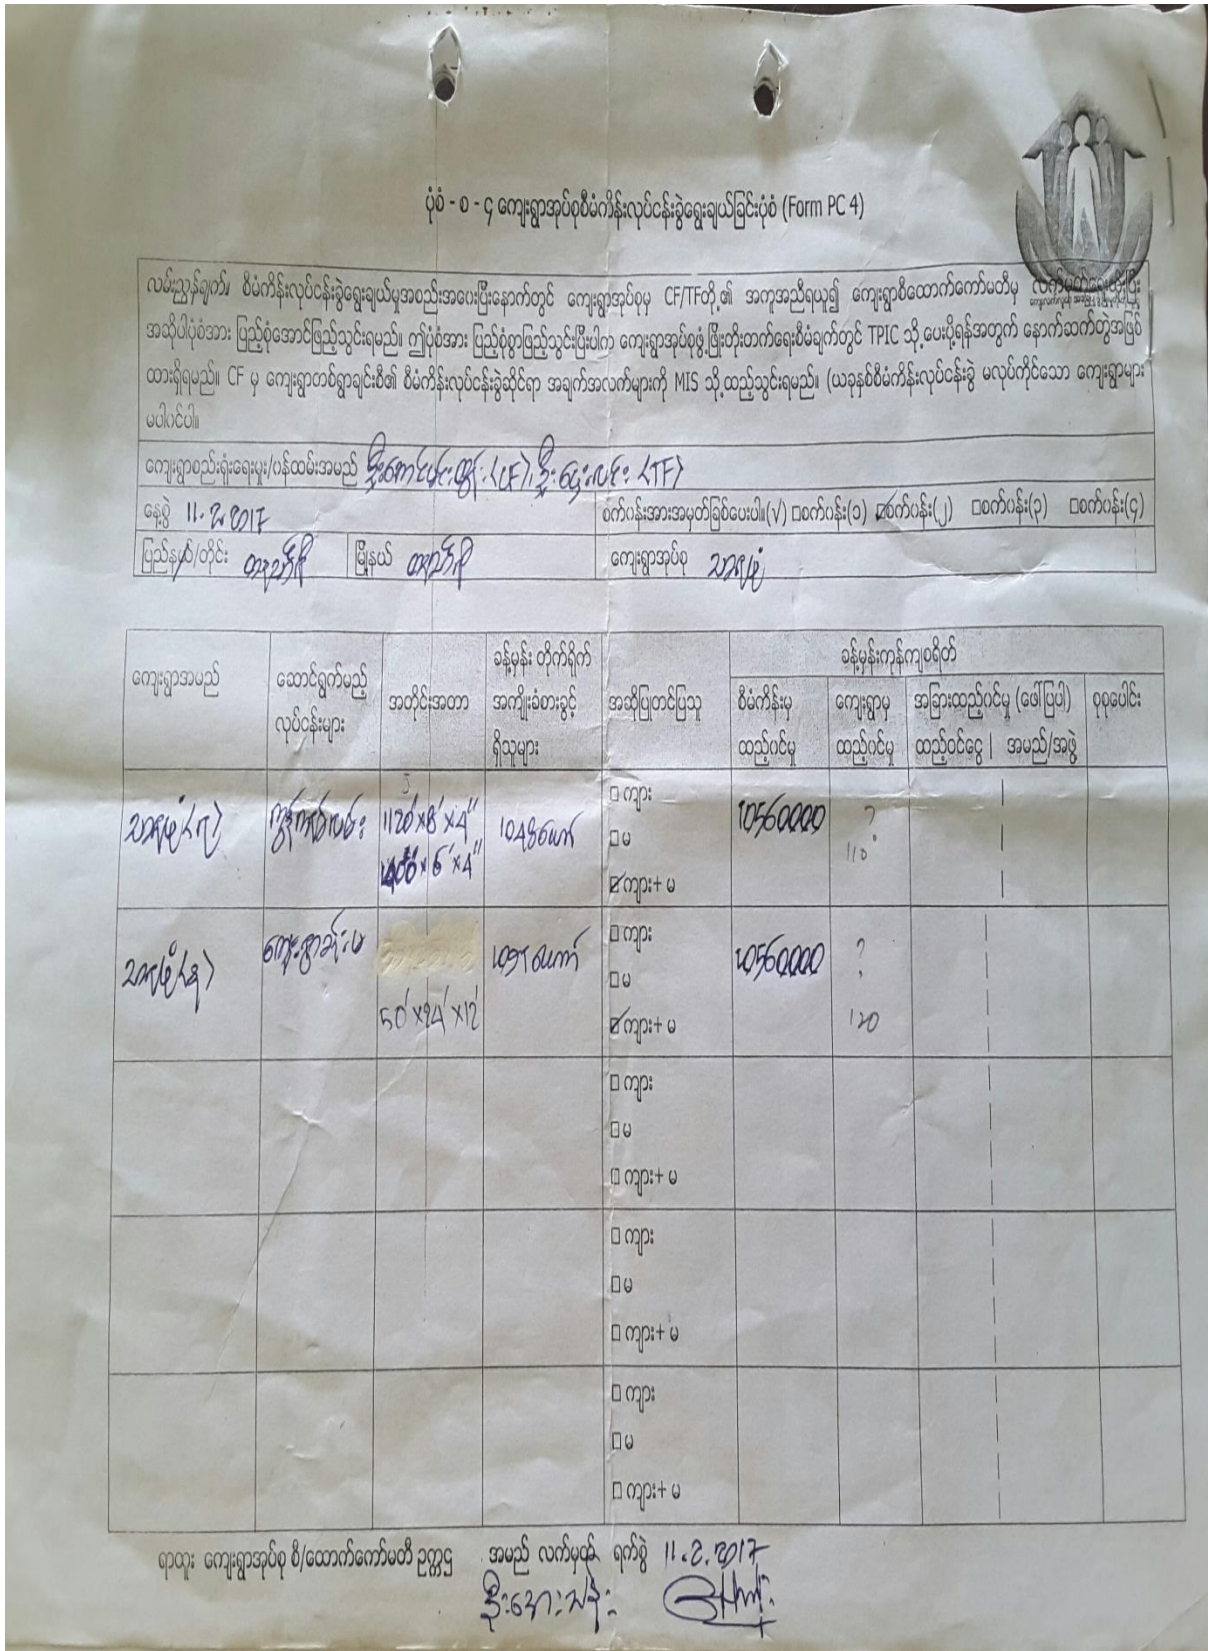 ပုံစံ - စ - ၄ ကျေးရွာအုပ်စုစီမံကိန်းလုပ်ငန်းခွဲရွေးချယ်ခြင်းပုံစံ (Form PC 4)
လမ်းညွှန်ချက်။ စီမံကိန်းလုပ်ငန်းခွဲရွေးချယ်မှုအစည်းအဝေးပြီးနောက်တွင် ကျေးရွာအုပ်စုမှ CF/TFတို့၏ အကူအညီရယူ၍ ကျေးရွာစီထောက်ကော်မတီမှ လက်မှတ်ရေးထိုးပြီး
အဆိုပါပုံစံအား ပြည့်စုံအောင်ဖြည့်သွင်းရမည်။ ဤပုံစံအား ပြည့်စုံစွာဖြည့်သွင်းပြီးပါက ကျေးရွာအုပ်စုဖွံ့ဖြိုးတိုးတက်ရေးစီမံချက်တွင် TPIC သို့ ပေးပို့ရန်အတွက် နောက်ဆက်တွဲအဖြစ်
ထားရှိရမည်။ CF မှ ကျေးရွာတစ်ရွာချင်းစီ၏ စီမံကိန်းလုပ်ငန်းခွဲဆိုင်ရာ အချက်အလက်များကို MIS သို့ထည့်သွင်းရမည်။ (ယခုနှစ်စီမံကိန်းလုပ်ငန်းခွဲ မလုပ်ကိုင်သော ကျေးရွာများ
မပါဝင်ပါ။
ကျေးရွာစည်းရုံးရေးမှူး/ဝန်ထမ်းအမည် <CF> <TF>
နေ့စွဲ 11.2.2017 စက်ဝန်းအားအမှတ်ခြစ်ပေးပါ။(√) □စက်ဝန်း(၁) ☑စက်ဝန်း(၂) □စက်ဝန်း(၃) □စက်ဝန်း(၄)
ပြည်နယ်/တိုင်း မြို့နယ် ကျေးရွာအုပ်စု
ကျေးရွာအမည် ဆောင်ရွက်မည့် လုပ်ငန်းများ အတိုင်းအတာ ခန့်မှန်း တိုက်ရိုက် အကျိုးခံစားခွင့် ရှိသူများ အဆိုပြုတင်ပြသူ ခန့်မှန်းကုန်ကျစရိတ်
စီမံကိန်းမှ ထည့်ဝင်မှု ကျေးရွာမှ ထည့်ဝင်မှု အခြားထည့်ဝင်မှု (ဖော်ပြပါ) စုစုပေါင်း
ထည့်ဝင်ငွေ | အမည်/အဖွဲ့
ကွန်ကရစ်လမ်း 1120'×8'×4" 1048ယောက် □ ကျား 10560000 ?
□ မ 110
×6'×4" ☑ ကျား+ မ
□ ကျား 10560000 ?
□ မ
50'×24'×12' ☑ ကျား+ မ 120
□ ကျား
□ မ
□ ကျား+ မ
□ ကျား
□ မ
□ ကျား+ မ
□ ကျား
□ မ
□ ကျား+ မ
ရာထူး ကျေးရွာအုပ်စု စီ/ထောက်ကော်မတီ ဥက္ကဌ အမည် လက်မှတ် ရက်စွဲ 11.2.2017